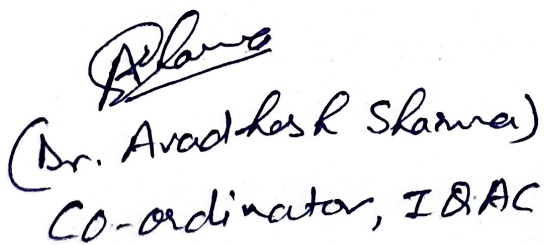 (Dr. Avadhesh Sharma)
Co-ordinator, IQAC